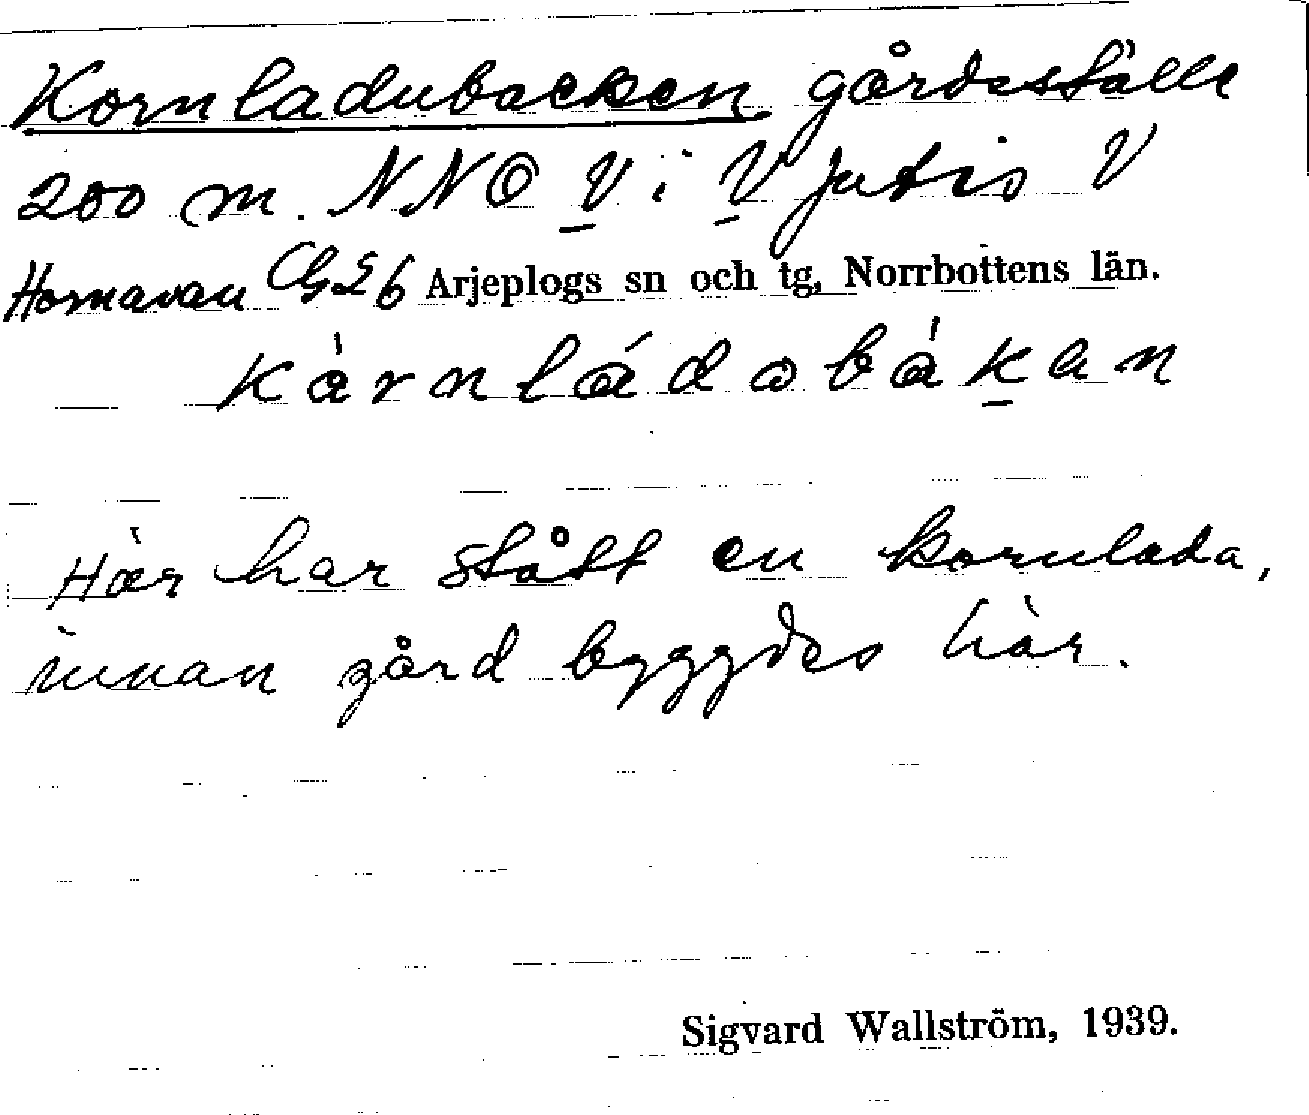 Kornladubacken gårdsställe
200 m. NNO V i Vjutis V
Hornavan G56 Arjeplogs sn och tg, Norrbottens län.
kårnládobákan
Här har stått en kornlada,
innan gård byggdes här.
Sigvard Wallström, 1939.